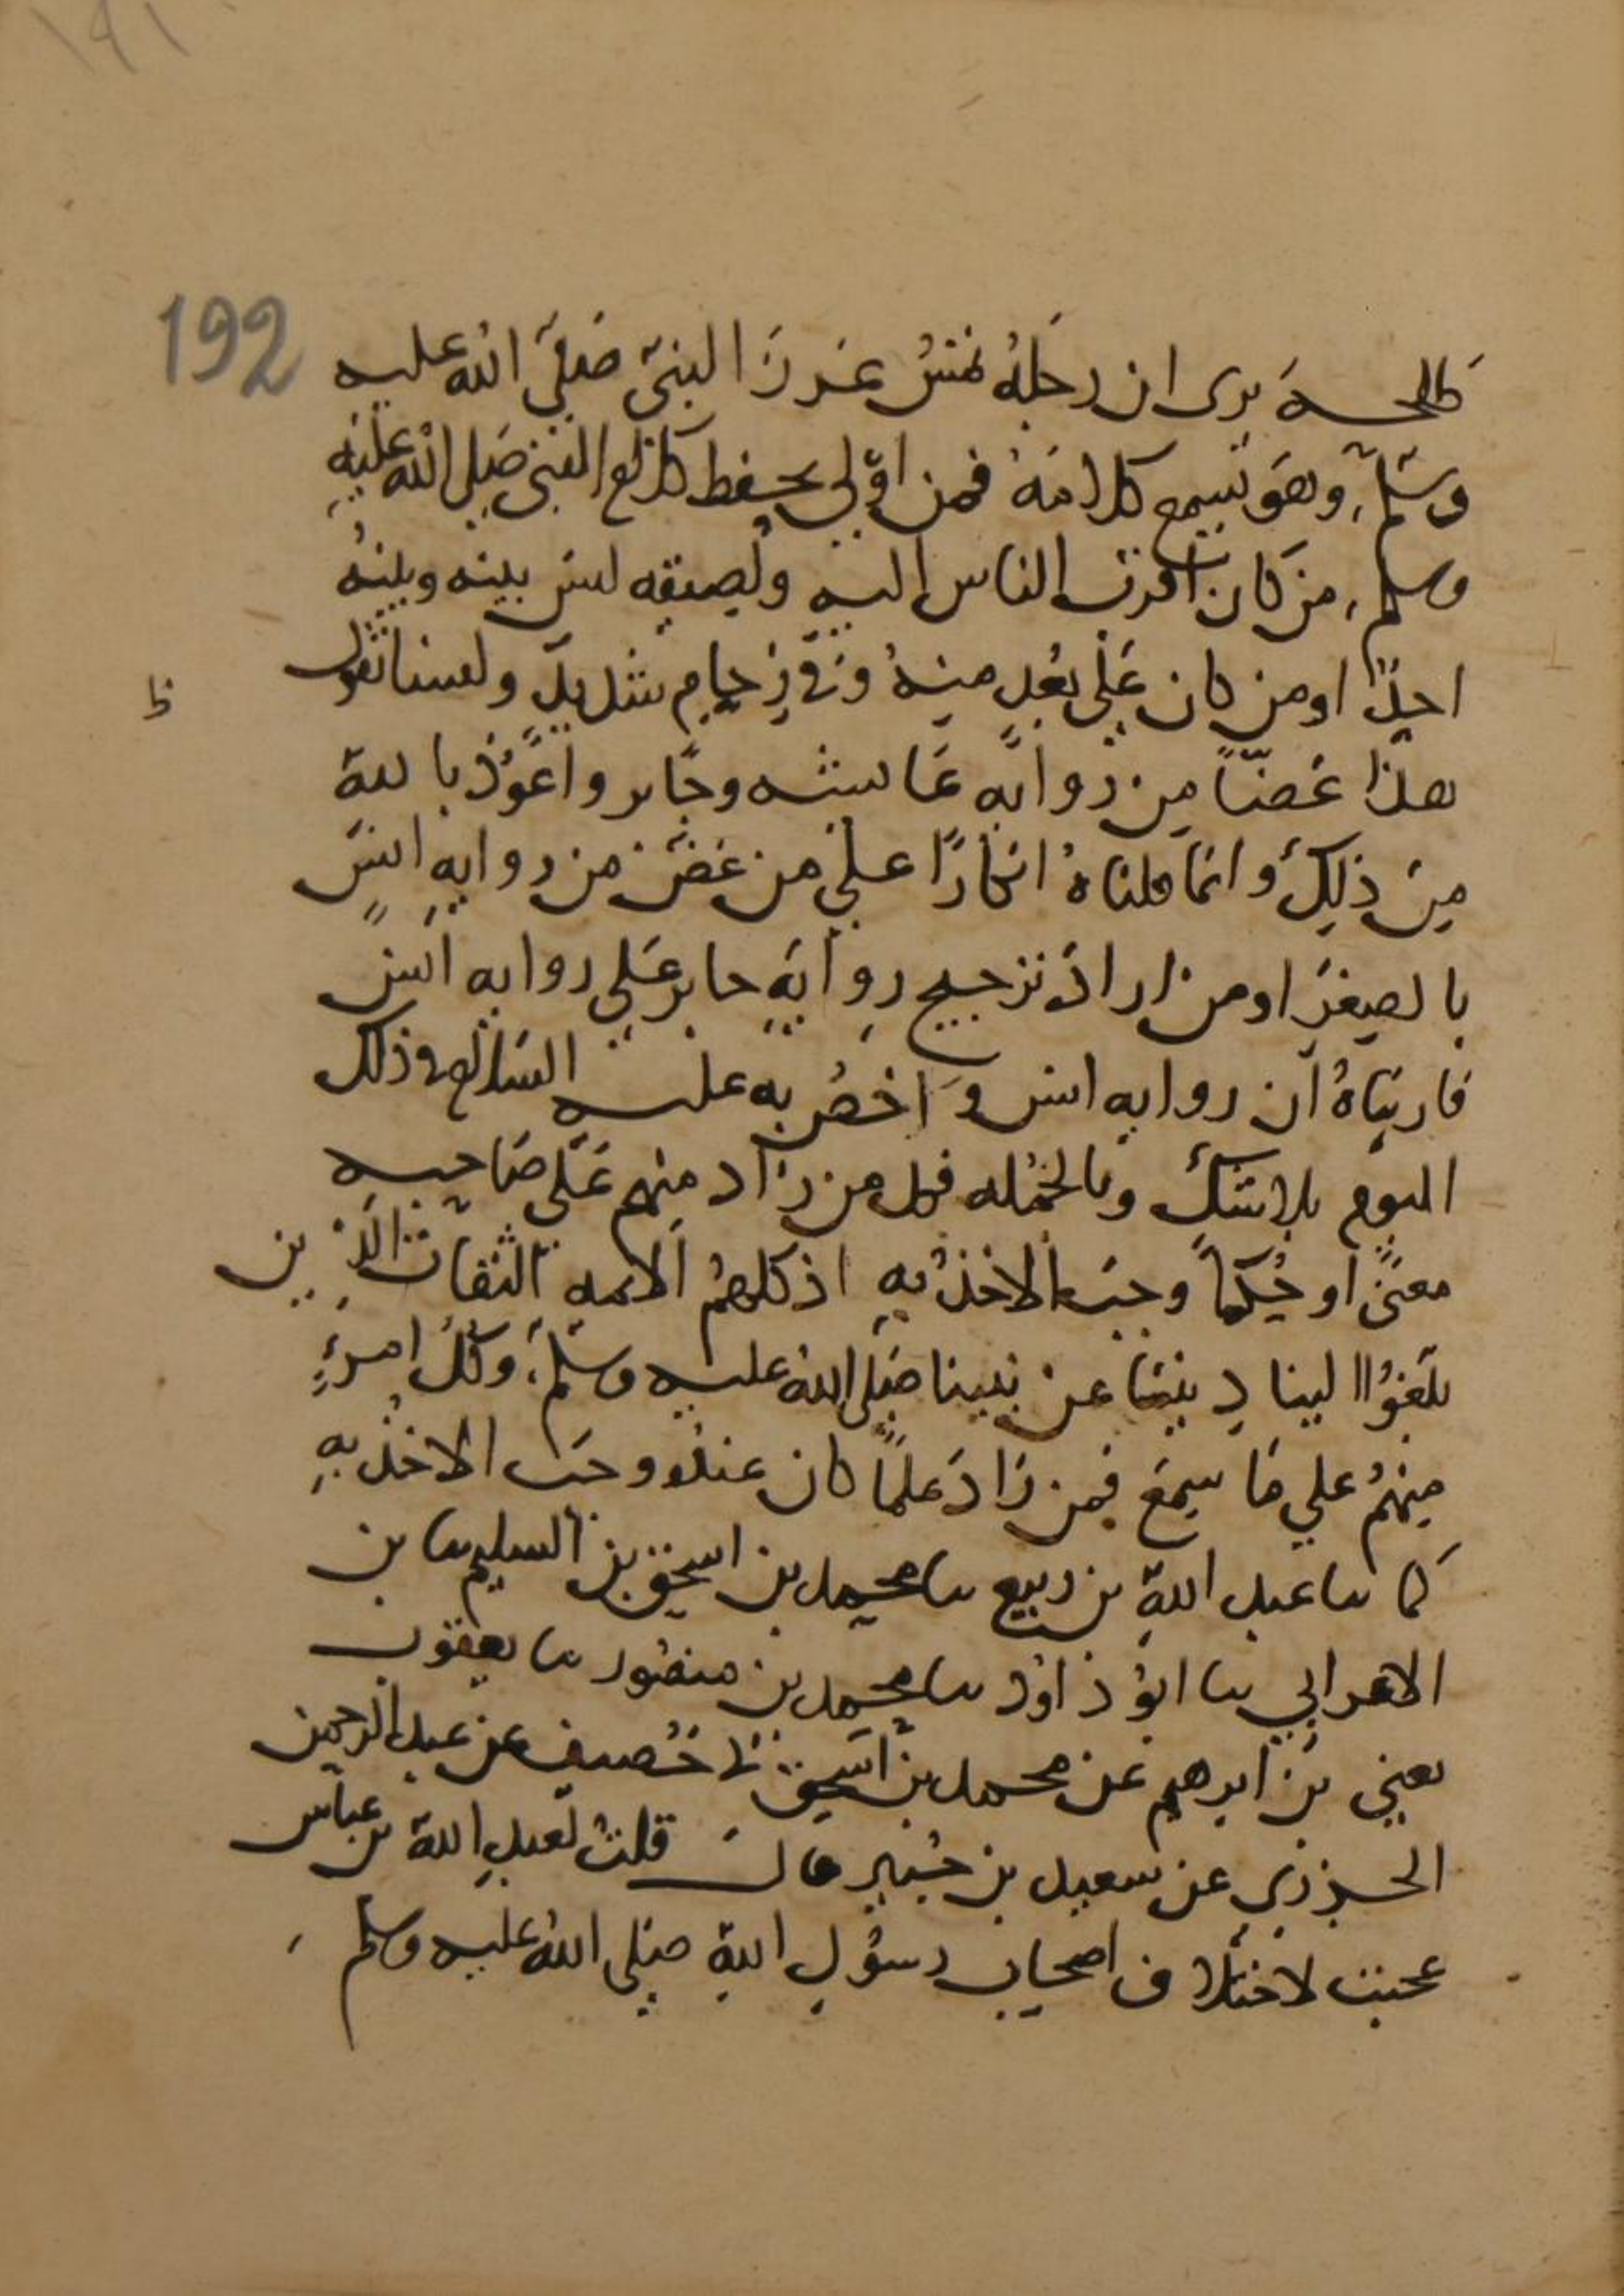 ١٩١
192
طلحة يرى ان رجله تمس غرز النبي صلى الله عليه
وسلم، وهو يسمع كلامه فمن اولى بحفظ كلام النبي صلى الله عليه
وسلم، من كان اقرب الناس اليه ولصيقه ليس بينه وبينه
احد او من كان على بعد منه وفي زحام شديد ولسنا نقول
ظ
هذا غضا من رواية عايشه وجابر واعوذ بالله
من ذلك وانما قلناه انكارا على من غض من رواية انس
بالصغر او من اراد ترجيح رواية جابر على رواية انس
فاريناه ان رواية انس اخص به عليه السلام في ذلك
اليوم بلا شك وبالجمله فكل من زاد منهم على صاحبه
معنى او حكما وجب الاخذ به اذ كلهم الايمه الثقات الذين
بلغوا الينا ديننا عن نبينا صلى الله عليه وسلم، وكل امرئ
منهم على ما سمع فمن زاد علما كان عنده وجب الاخذ به
كما نا عبد الله بن ربيع نا محمد بن اسحق بن السليم نا بن
الاعرابي نا ابو داود نا محمد بن منصور نا يعقوب
يعني بن ابرهيم عن محمد بن اسحق نا خصيف عن عبد الرحمن
الجزري عن سعيد بن جبير قال قلت لعبد الله بن عباس
عجبت لاختلاف اصحاب رسول الله صلى الله عليه وسلم